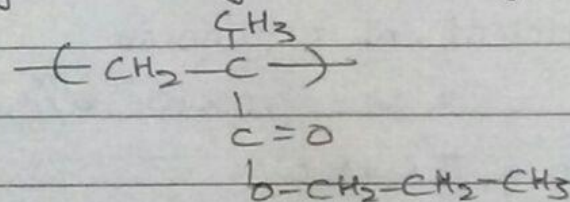 CH3
-( CH2-C- )-
C=O
O-CH2-CH2-CH3